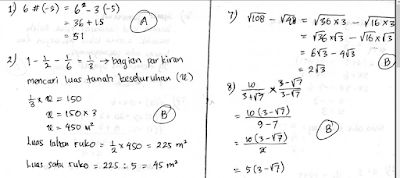 1) 6 # (-3) = 6² - 3 (-5)
= 36 + 15
= 51
A
2) 1 - 1/2 - 1/6 = 1/3 → bagian parkiran
mencari luas tanah keseluruhan (x)
1/3 x x = 150
x = 150 x 3
x = 450 m²
B
Luas lahan ruko = 1/2 x 450 = 225 m²
Luas satu ruko = 225 : 5 = 45 m²
7) √108 - √48 = √36 x 3 - √16 x 3
= √36 x √3 - √16 x √3
= 6√3 - 4√3
= 2√3
B
8) 10/3+√7 x 3-√7/3-√7
= 10 (3-√7)/9-7
= 10 (3-√7)/2
B
= 5 (3-√7)